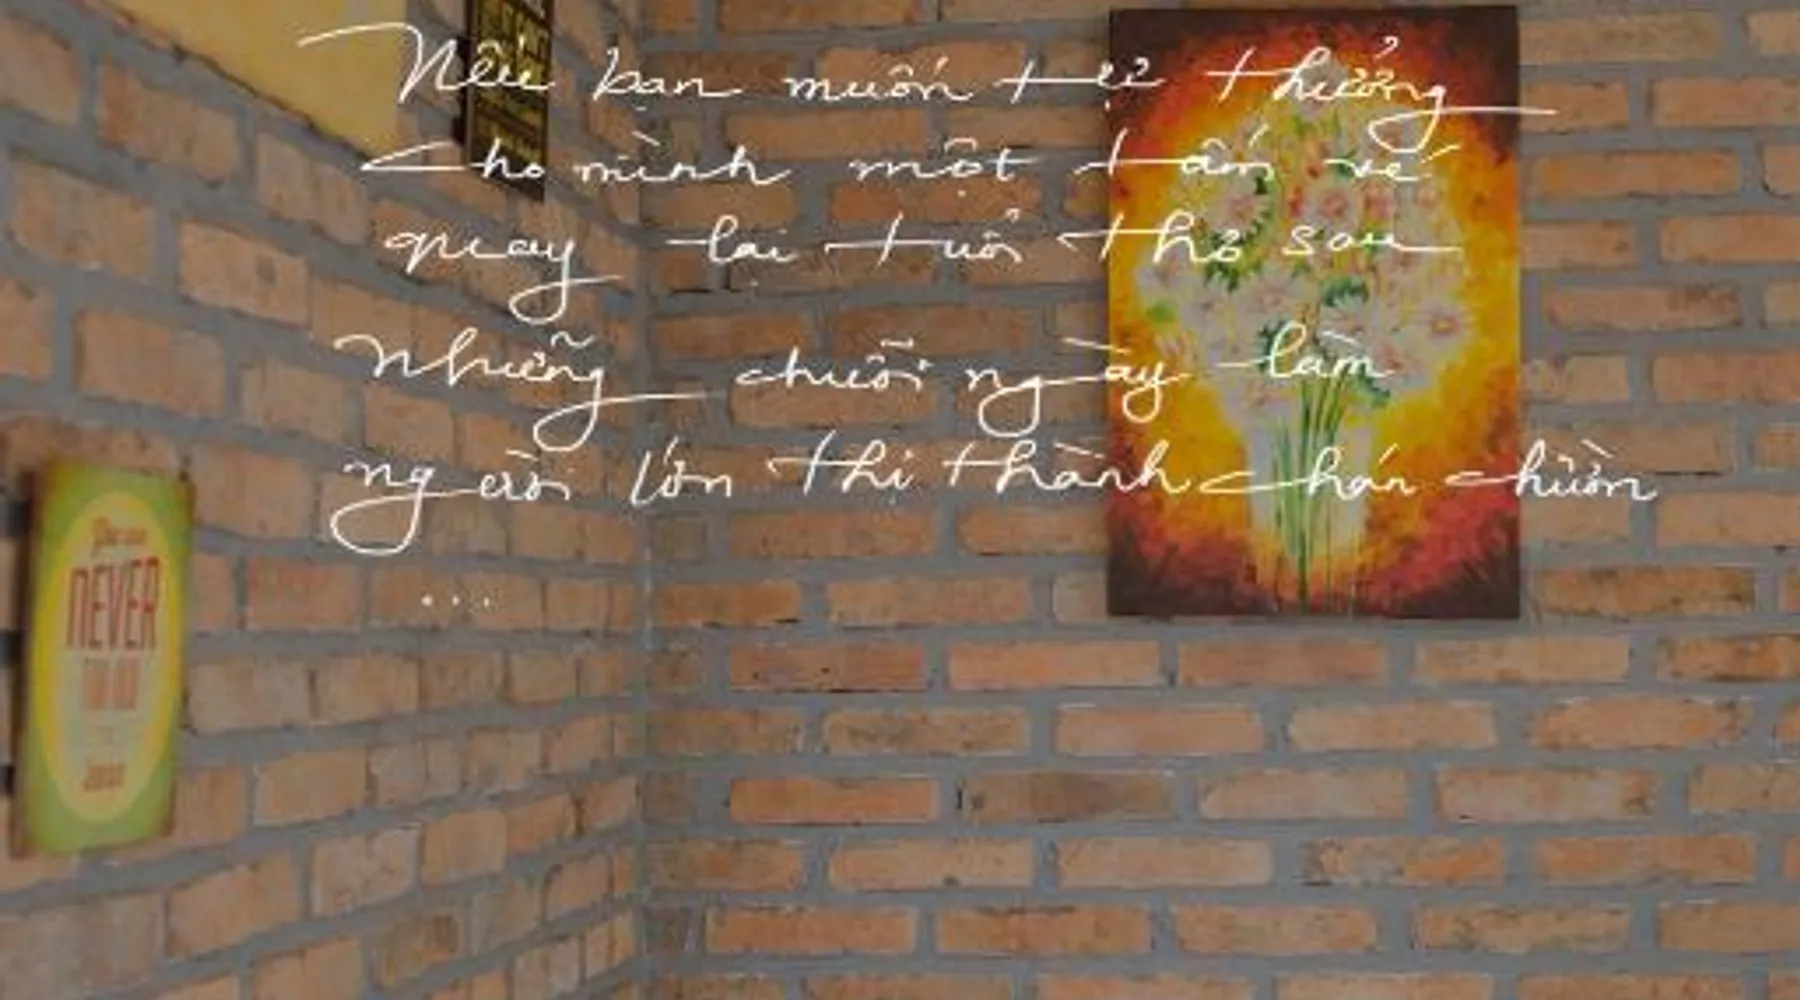 Nếu bạn muốn tự thưởng
cho mình một tấm vé
quay lại tuổi thơ sau
những chuỗi ngày làm
người lớn thị thành chán chường
...
NEVER